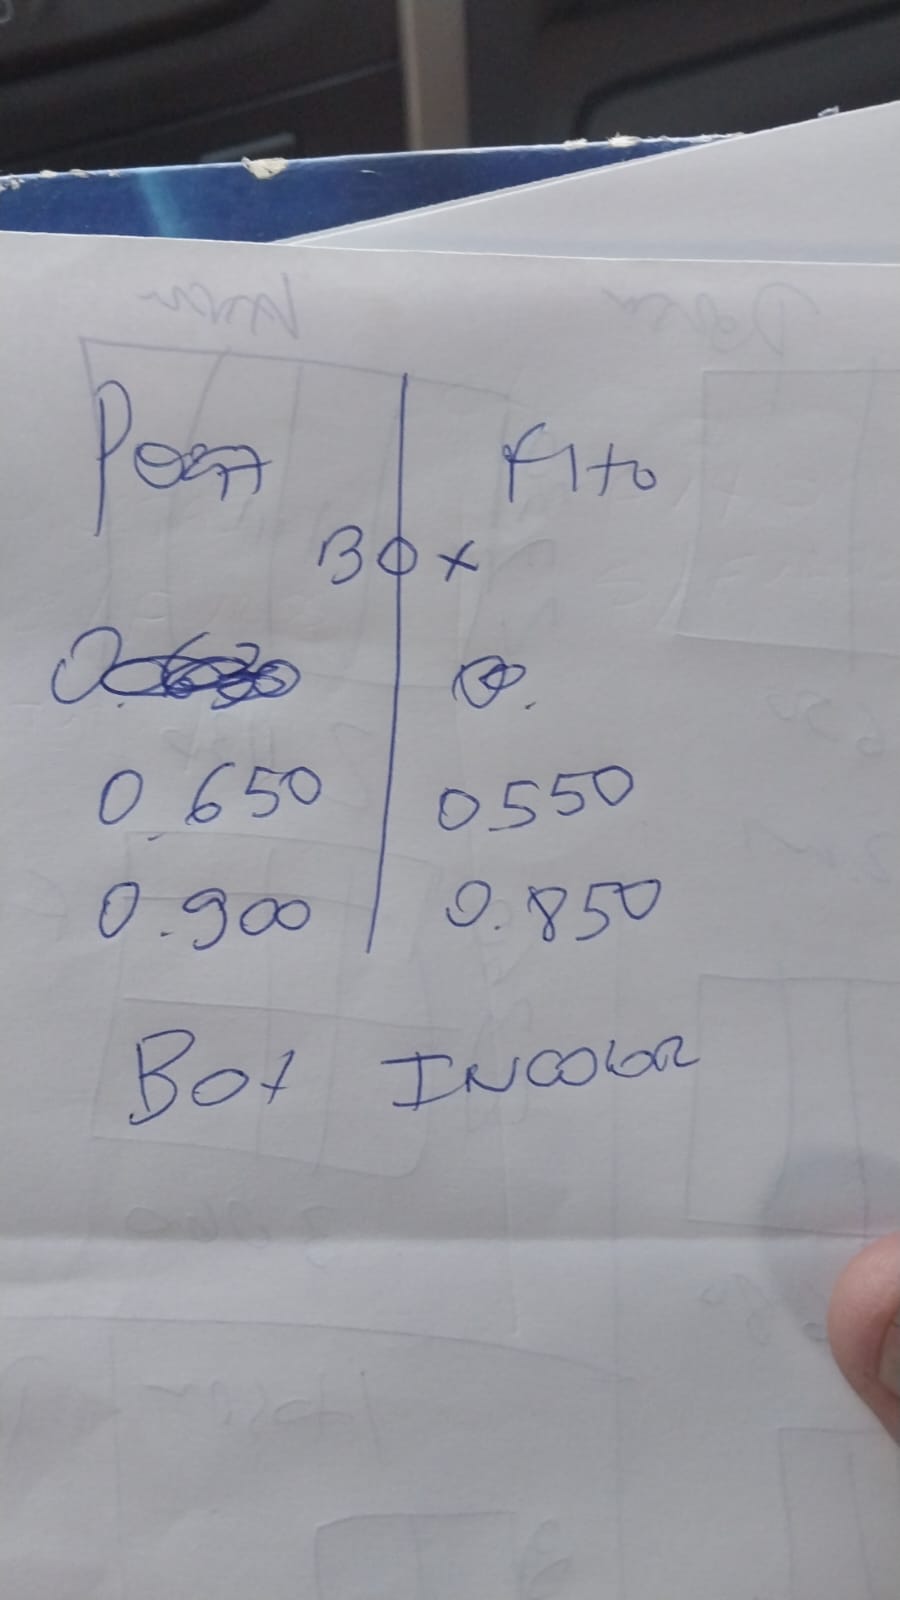 Porta Fixo
Box
0.650 0550
0.900 0.850
Box INCOLOR